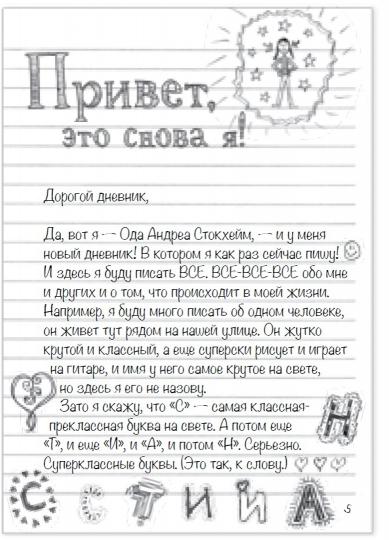 Привет,
это снова я!
Дорогой дневник,
Да, вот я — Ода Андреа Стокхейм, — и у меня
новый дневник! В котором я как раз сейчас пишу!
И здесь я буду писать ВСЕ. ВСЕ-ВСЕ-ВСЕ обо мне
и других и о том, что происходит в моей жизни.
Например, я буду много писать об одном человеке,
он живет тут рядом на нашей улице. Он жутко
крутой и классный, а еще суперски рисует и играет
на гитаре, и имя у него самое крутое на свете,
но здесь я его не назову.
Зато я скажу, что «С» — самая классная-
преклассная буква на свете. А потом еще
«Т», и еще «И», и «А», и потом «Н». Серьезно.
Суперклассные буквы. (Это так, к слову.)
Н
С С Т И И А
5